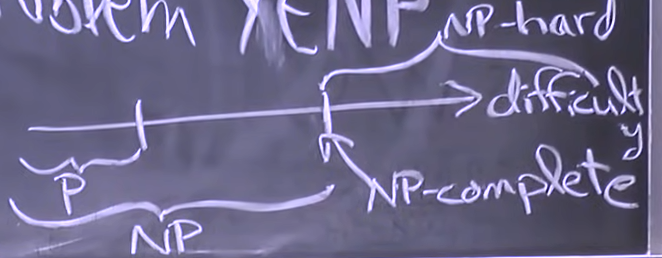 problem X∈NP
NP-hard
difficulty
P
NP-complete
NP